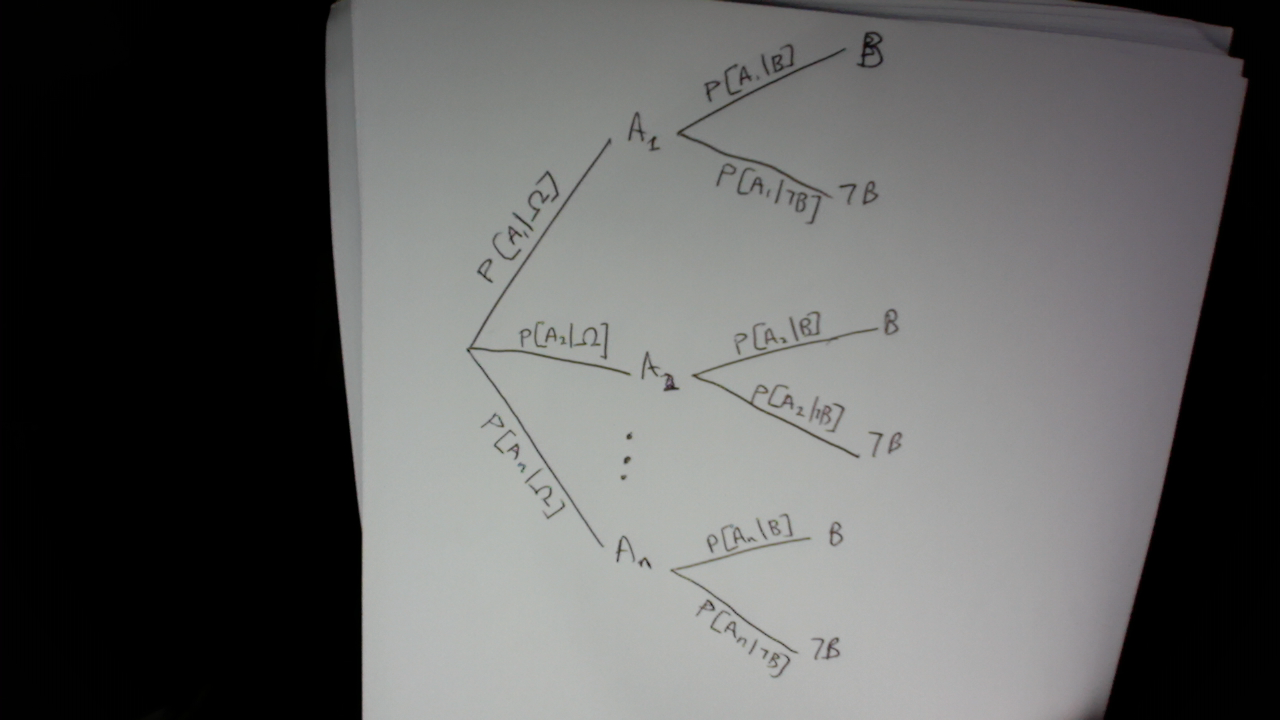 P[A₁|B] B
A₁
P[A₁|¬B] ¬B
P[A₁|Ω]
P[A₂|Ω] A₂
P[A₂|B] B
P[A₂|¬B] ¬B
⋮
P[Aₙ|Ω] Aₙ
P[Aₙ|B] B
P[Aₙ|¬B] ¬B